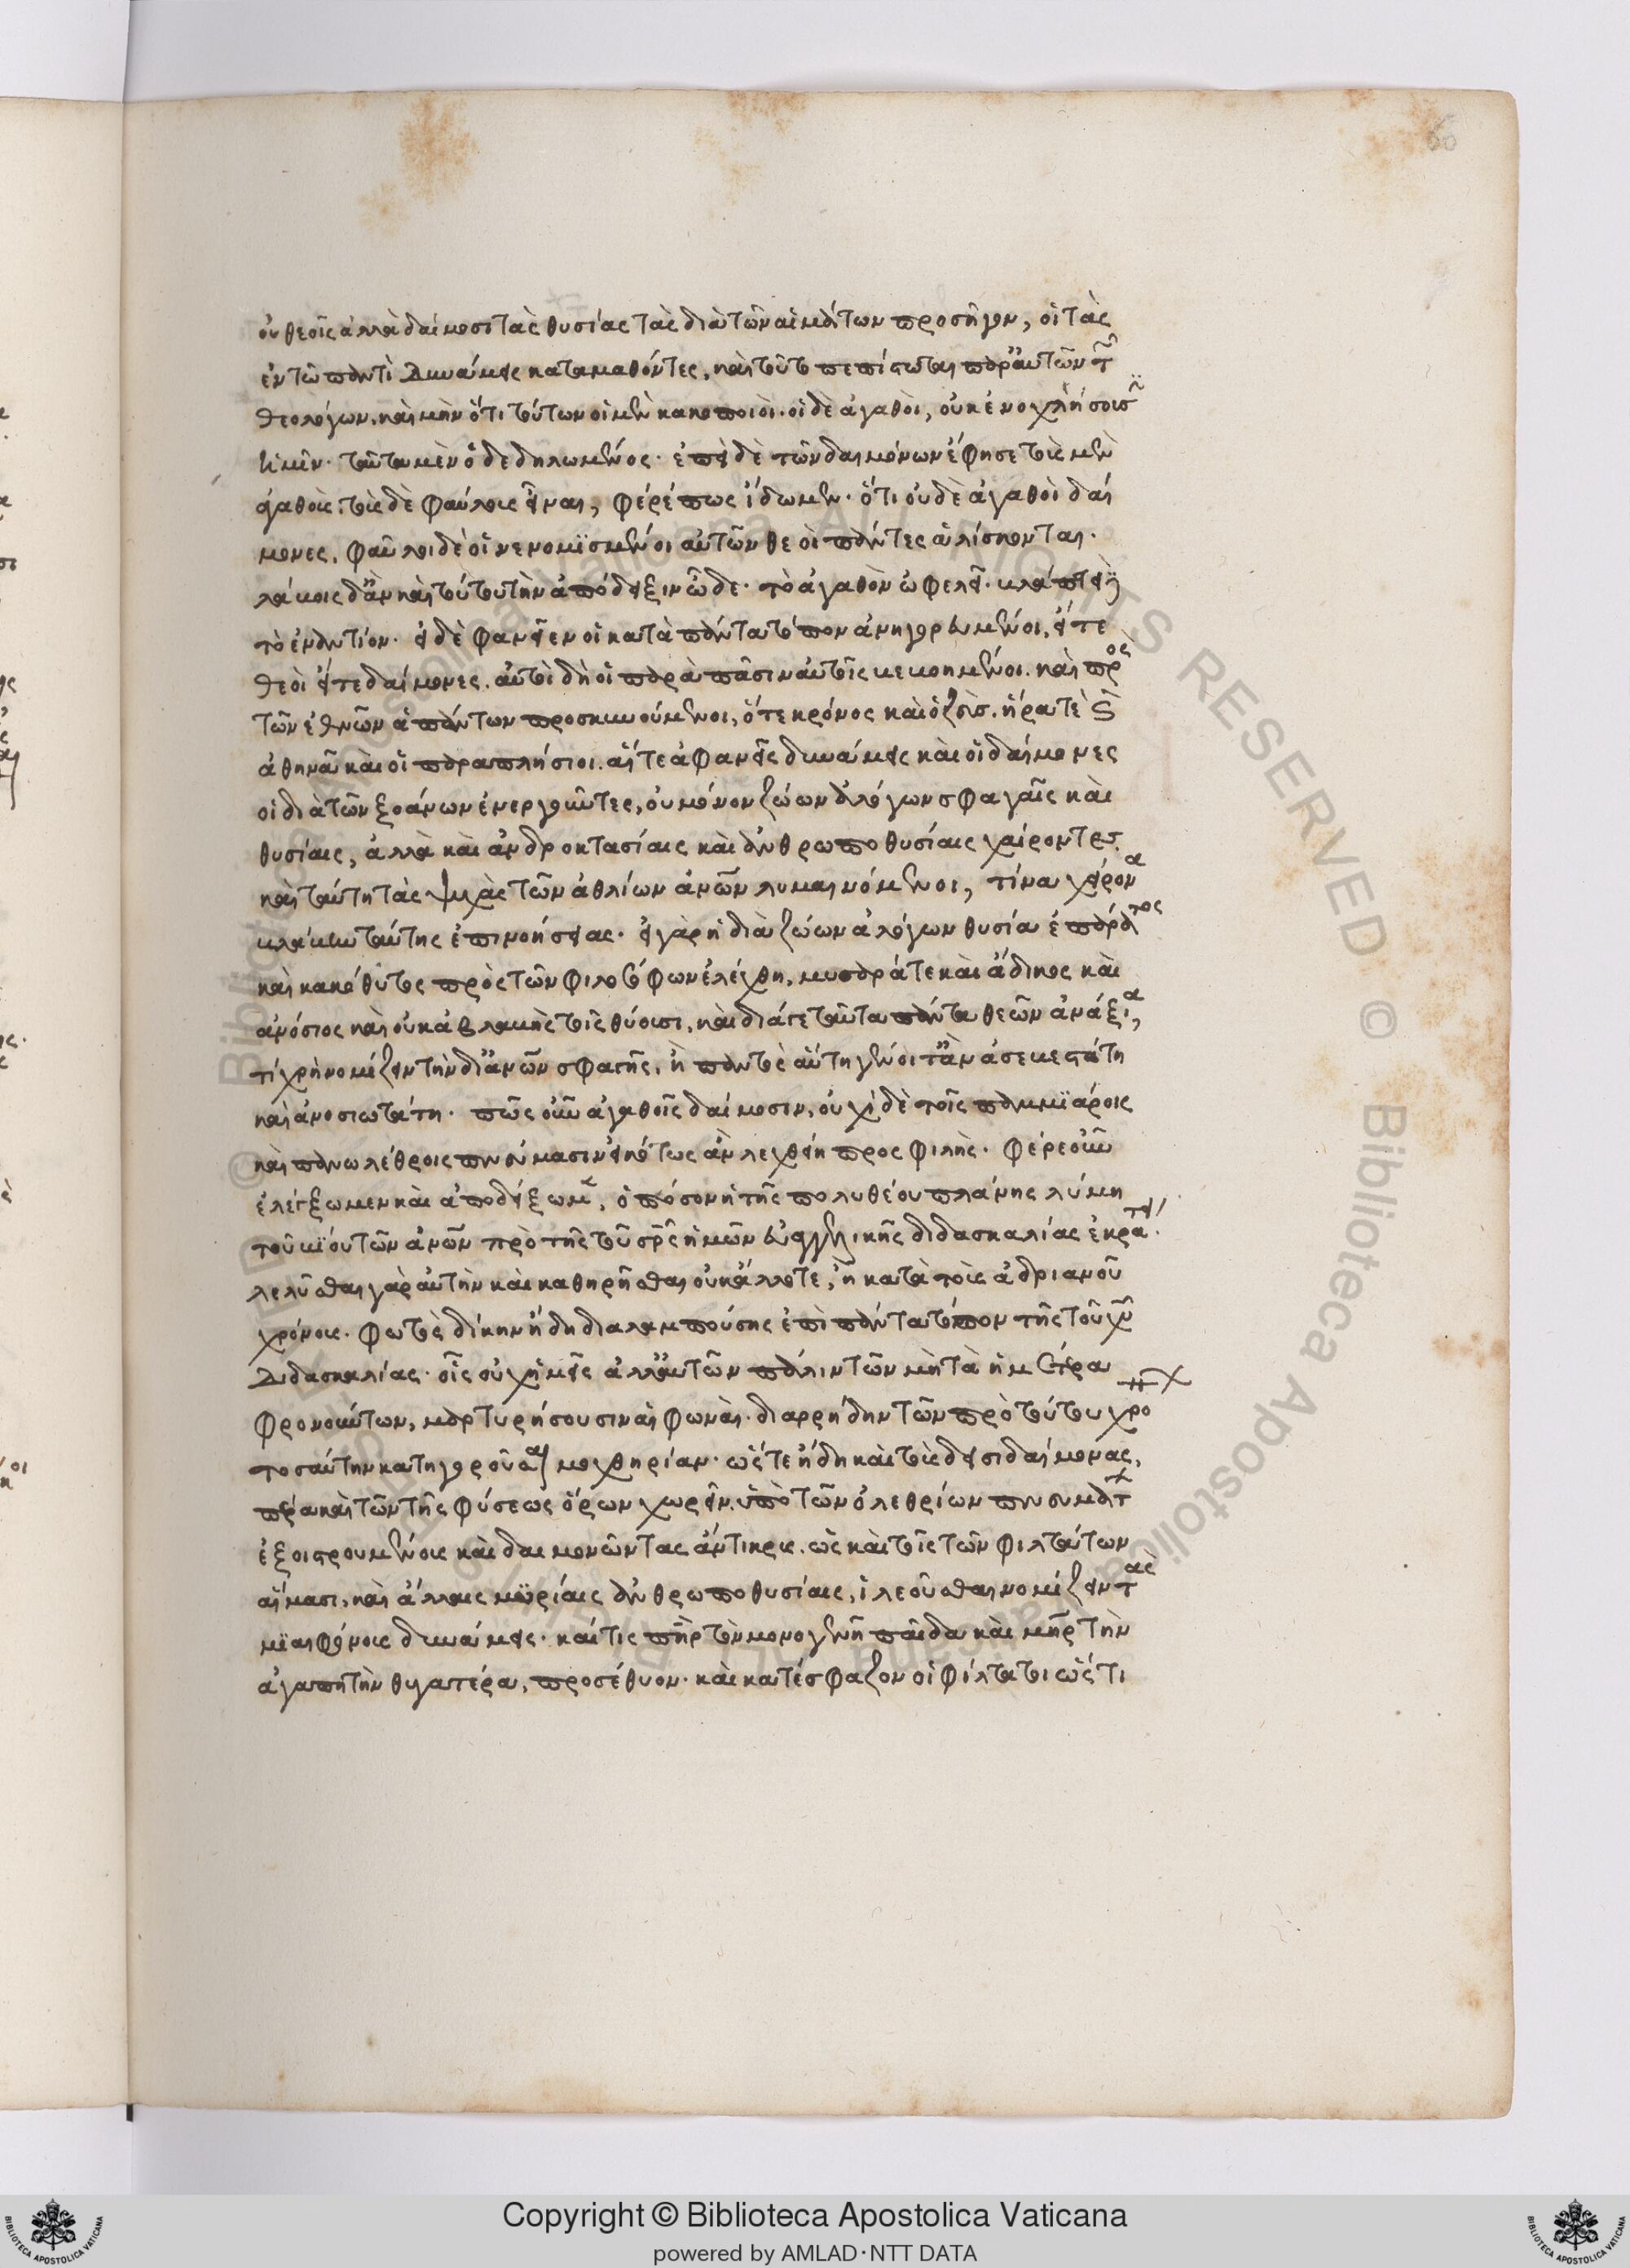 οὐ θεοῖς ἀλλὰ δαίμοσι τὰς θυσίας τὰς διὰ τῶν αἱμάτων προσῆγον, οἱ τὰς
ἐν τῷ παντὶ δυνάμεις καταμαθόντες. καὶ τοῦτο πεπίστωται παρ' αὐτῶν τῶν
θεολόγων. καὶ μὴν ὅτι τούτων οἱ μὲν κακοποιοὶ. οἱ δὲ ἀγαθοὶ, οὐκ ἐνοχλήσουσιν
ἡμῖν. ταῦτα μὲν ὁ δεδηλωμένος. ἐπεὶ δὲ τῶν δαιμόνων ἔφησε τοὺς μὲν
ἀγαθοὺς. τοὺς δὲ φαύλους εἶναι, φέρέ πως ἴδωμεν. ὅτι οὐδὲ ἀγαθοὶ δαί
μονες. φαῦλοι δὲ οἱ νενομϊσμένοι αὐτῶν θεοὶ πάντες ἁλίσκονται.
λάβοις δ' ἂν καὶ τούτου τὴν ἀπόδειξιν ὧδε. τὸ ἀγαθὸν ὠφελεῖ. βλάπτει
τὸ ἐναντίον. εἰ δὲ φανεῖεν οἱ κατὰ πάντα τόπον ἀνηγορευμένοι. εἴτε
θεοὶ εἴτε δαίμονες. αὐτοὶ δὴ οἱ παρὰ πᾶσιν αὐτοῖς βεβοημένοι. καὶ πρὸς
τῶν ἐθνῶν ἁπάντων προσκυνούμενοι, ὅτε κρόνος καὶ ὁ ζεὺς. ἥρα τὲ καὶ
ἀθηνᾶ καὶ οἱ παραπλήσιοι. αἵ τε ἀφανεῖς δυνάμεις καὶ οἱ δαίμονες
οἱ διὰ τῶν ξοάνων ἐνεργοῦντες, οὐ μόνον ζώων ἀλόγων σφαγαῖς καὶ
θυσίαις, ἀλλὰ καὶ ἀνδροκτασίαις καὶ ἀνθρωποθυσίαις χαίροντες.
καὶ ταύτῃ τὰς ψυχὰς τῶν ἀθλίων ἀνῶν λυμαινόμενοι, τίνα χείρονα
βλάβην ταύτης ἐπινοήσειας. εἰ γὰρ ἡ διὰ ζώων ἀλόγων θυσία ἐπάρατος
καὶ κακόθυτος πρὸς τῶν φιλοσόφων ἐλέχθη, μυσαρά τε καὶ ἄδικος καὶ
ἀνόσιος καὶ οὐκ ἀβλαβὴς τοῖς θύουσι. καὶ διά γε ταῦτα πάντα θεῶν ἀνάξια,
τί χρὴ νομίζειν τὴν δι' ἀνῶν σφαγῆς. ἢ παντὸς αὕτη γένοιτ' ἂν ἀσεβεστάτη
καὶ ἀνοσιωτάτη. πῶς οὖν ἀγαθοῖς δαίμοσιν. οὐχὶ δὲ τοῖς παμμϊάροις
καὶ πανωλέθροις πνεύμασιν εἰκότως ἂν λεχθείη προσφιλὴς. φέρε οὖν
ἐλέγξωμεν καὶ ἀποδείξωμεν, ὁπόσον ἡ τῆς πολυθέου πλάνης λύμη
τοῦ βϊου τῶν ἀνῶν πρὸ τῆς τοῦ σρς ἡμῶν εὐαγγελικῆς διδασκαλίας ἐκράτει.
λελύσθαι γὰρ αὐτὴν καὶ καθηρῆσθαι οὐκ ἄλλοτε, ἢ κατὰ τοὺς ἀδριανοῦ
χρόνους. φωτὸς δίκην ἤδη διαλαμπούσης ἐπὶ πάντα τόπον τῆς τοῦ χυ
διδασκαλίας. οἷς οὐχ ἡμεῖς ἀλλ' αὐτῶν πάλιν τῶν μὴ τὰ ἡμέτερα
φρονούντων, μαρτυρήσουσιν αἱ φωναὶ. διαρρήδην τῶν πρὸ τούτου χρό
τοσαύτην κατηγοροῦσαι μοχθηρίαν. ὥστε ἤδη καὶ τοὺς δεισιδαίμονας,
πέρα καὶ τῶν τῆς φύσεως ὅρων χωρεῖν. ὑπὸ τῶν ὀλεθρίων πνευμάτων
ἐξοιστρουμένους καὶ δαιμονῶντας ἄντικρυς. ὡς καὶ τοῖς τῶν φιλτάτων
αἵμασι, καὶ ἄλλαις μυρίαις ἀνθρωποθυσίαις, ἱλεοῦσθαι νομίζειν τὰς
μϊαιφόνους δυνάμεις. καί τις πηρ τὸν μονογενῆ παῖδα καὶ μηρ τὴν
ἀγαπητὴν θυγατέρα, προσέθυον. καὶ κατέσφαζον οἱ φίλτατοι ὥς τι